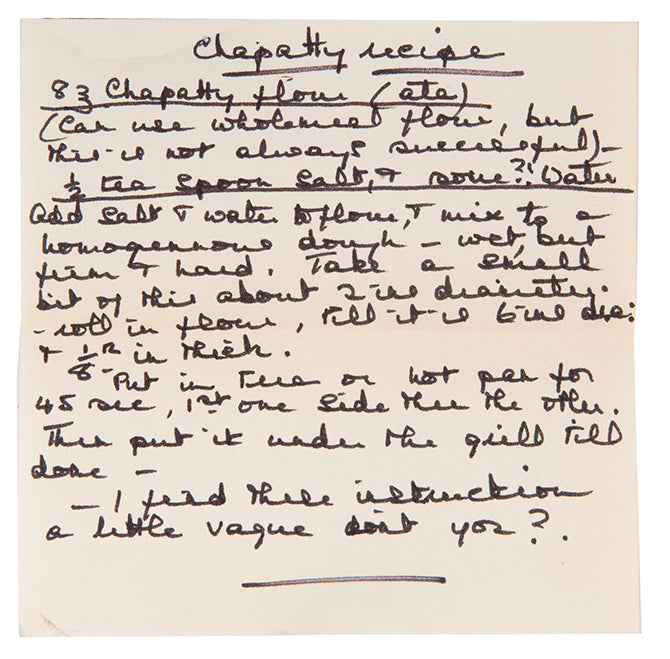 Chapatty recipe
8 ℥ Chapatty flour (ata)
(Can use wholemeal flour, but
this is not always successful) -
½ tea spoon salt, & some?! Water
Add salt & water to flour, & mix to a
homogennous dough - wet, but
firm & hard. Take a small
bit of this about 2-ins diametry.
- roll in flour, till it is 6-ins dia:
& 1/8th in thick.
Put in or hot pan for
45 sec, 1st one side then the other.
Then put it under the grill till
done -
- I find these instruction
a little vague dont you?.